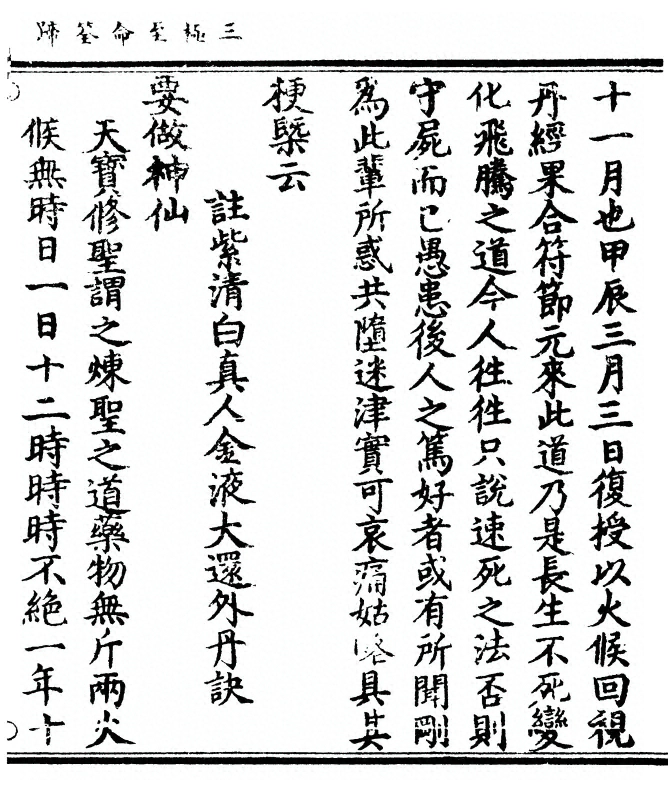 三極至命筌蹄
十一月也甲辰三月三日復授以火候回視
丹經果合符節元來此道乃是長生不死變
化飛騰之道今人徃徃只說速死之法否則
守屍而已愚患後人之篤好者或有所聞剛
為此輩所惑共墮迷津實可哀痛姑略具其
梗槩云
註紫清白真人金液大還外丹訣
要做神仙
天寶修聖謂之煉聖之道藥物無斤兩火
候無時日一日十二時時時不絶一年十